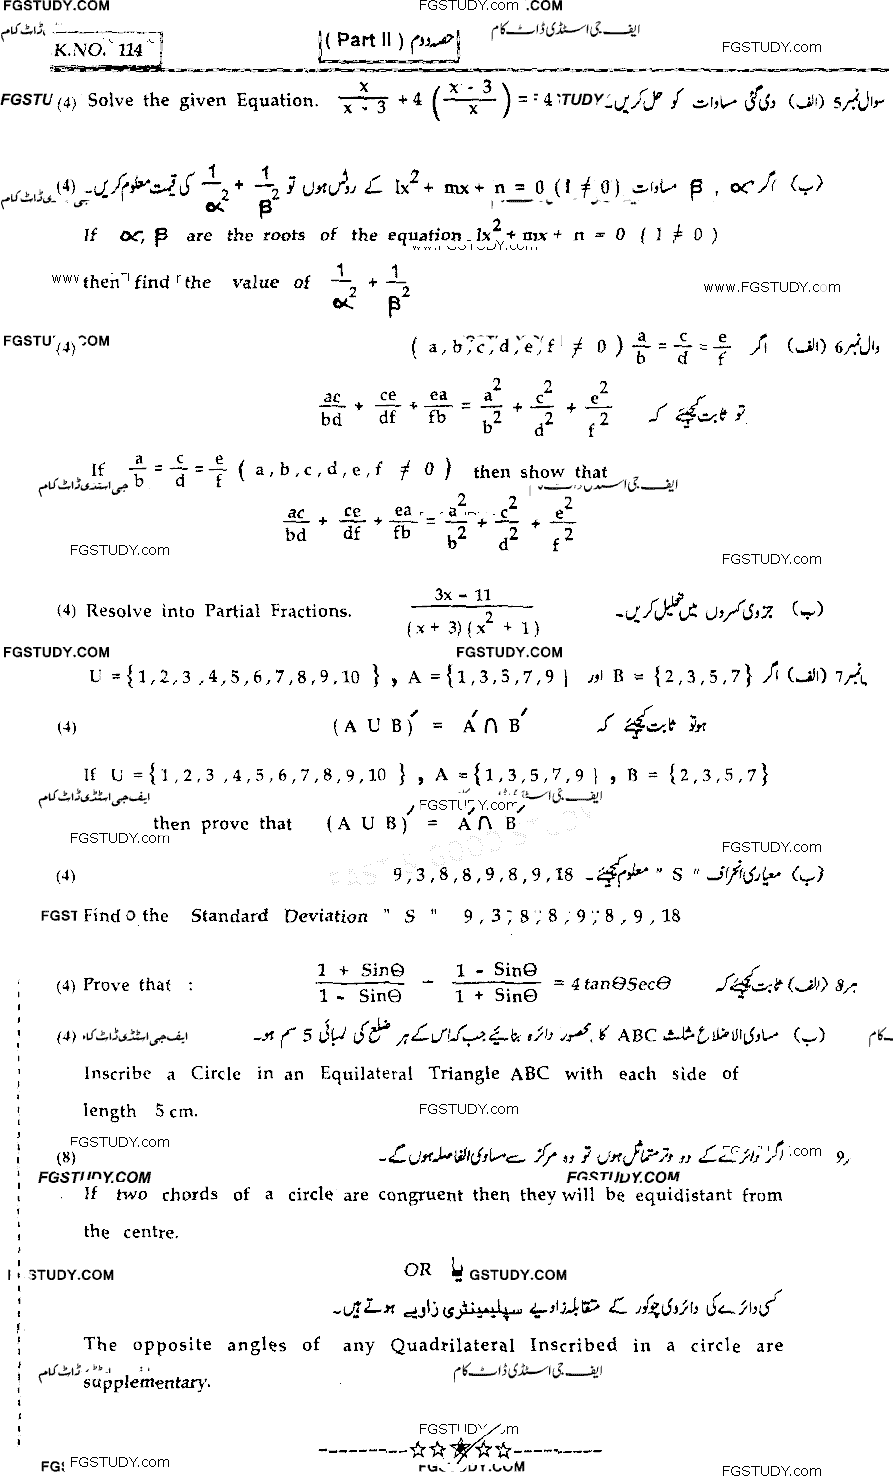 FGSTUDY.COM FGSTUDY.com .COM
ایف جی اسٹڈی ڈاٹ کام
K.NO. 114 ( Part II ) حصہ دوم
FGSTUDY.com
سوال نمبر 5 (الف) دی گئی مساوات کو حل کریں۔ x/(x - 3) + 4 ((x - 3)/x) = 4 Solve the given Equation. (4)
(ب) اگر α , β مساوات lx² + mx + n = 0 (l ≠ 0) کے روٹس ہوں تو 1/α² + 1/β² کی قیمت معلوم کریں۔ (4)
If α, β are the roots of the equation lx² + mx + n = 0 ( l ≠ 0 )
www.FGSTUDY.com
then find the value of 1/α² + 1/β²
www.FGSTUDY.com
6 (الف) اگر a/b = c/d = e/f ( a, b, c, d, e, f ≠ 0 ) (4)
تو ثابت کیجئے کہ ac/bd + ce/df + ea/fb = a²/b² + c²/d² + e²/f²
If a/b = c/d = e/f ( a, b, c, d, e, f ≠ 0 ) then show that
ac/bd + ce/df + ea/fb = a²/b² + c²/d² + e²/f²
FGSTUDY.com FGSTUDY.com
(4) Resolve into Partial Fractions. (3x - 11)/((x + 3)(x² + 1)) (ب) جزوی کسروں میں تحلیل کریں۔
FGSTUDY.COM FGSTUDY.COM
7 (الف) اگر B = {2,3,5,7} اور U = {1,2,3,4,5,6,7,8,9,10 } , A = {1,3,5,7,9}
ہو تو ثابت کیجئے کہ (A U B)′ = A′ ∩ B′ (4)
If U = {1,2,3,4,5,6,7,8,9,10 } , A = {1,3,5,7,9} , B = {2,3,5,7}
ایف جی اسٹڈی ڈاٹ کام FGSTUDY.com
then prove that (A U B)′ = A′ ∩ B′
FGSTUDY.com FGSTUDY.com
(ب) معیاری انحراف " S " معلوم کیجئے۔ 9,3,8,8,9,8,9,18 (4)
Find the Standard Deviation " S " 9, 3, 8, 8, 9, 8, 9, 18
8 (الف) ثابت کیجئے کہ (1 + Sinθ)/(1 - Sinθ) - (1 - Sinθ)/(1 + Sinθ) = 4 tanθSecθ Prove that : (4)
(ب) مساوی الاضلاع مثلث ABC کا محصور دائرہ بنائیے جب کہ اس کے ہر ضلع کی لمبائی 5 سم ہو۔ (4)
ایف جی اسٹڈی ڈاٹ کام
Inscribe a Circle in an Equilateral Triangle ABC with each side of
length 5 cm.
FGSTUDY.com
FGSTUDY.com
9 اگر دائرے کے دو وتر متماثل ہوں تو وہ مرکز سے مساوی الفاصلہ ہوں گے۔ (8)
FGSTUDY.COM FGSTUDY.COM
If two chords of a circle are congruent then they will be equidistant from
the centre.
STUDY.COM OR یا GSTUDY.COM
کسی دائرے کی دائروی چوکور کے متقابلہ زاویے سپلیمینٹری زاویے ہوتے ہیں۔
The opposite angles of any Quadrilateral Inscribed in a circle are
supplementary.
ایف جی اسٹڈی ڈاٹ کام
FGSTUDY.com
FGSTUDY.com FGSTUDY.com